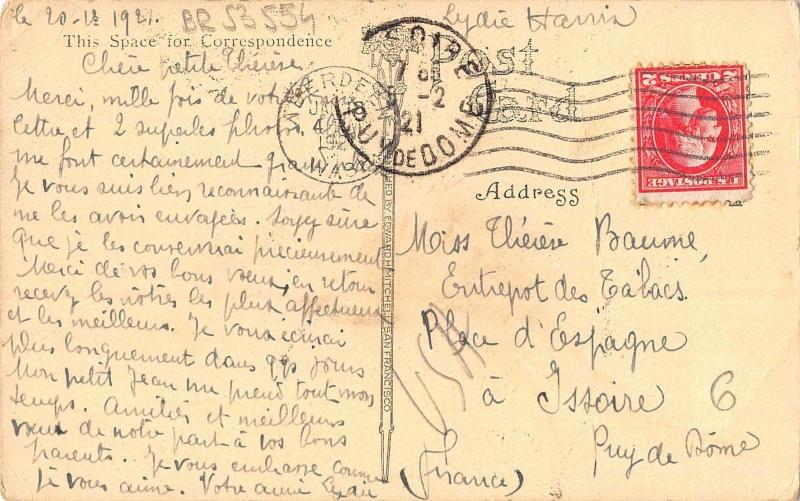 le 20-12 1921.
BR 53554
Lydie Harris
This Space for Correspondence
Post
Card
Chère petite Thérèse.
Merci, mille fois de votre
lettre et 2 superbes photos
me font certainement grand
Je vous suis bien reconnaissante de
me les avoir envoyées. Soyez sûre
que je les conserverai précieusement
Merci de vos bons vœux, en retour
recevez les nôtres les plus affectueux
et les meilleurs. Je vous écrirai
plus longuement dans qqs jours
Mon petit Jean me prend tout mon
temps. Amitiés et meilleurs
vœux de notre part à vos bons
parents. Je vous embrasse comme
je vous aime. Votre amie Lydie
ABERDEEN
JAN
4
WASH
ISSOIRE
-2
21
PUY DE DOME
2 CENTS 2
U.S. POSTAGE
Address
Miss Thérèse Baume,
Entrepot des Tabacs.
Place d'Espagne
à Issoire 6
Puy de Dôme
(France)
USA
PUBLISHED BY EDWARD H. MITCHELL, SAN FRANCISCO